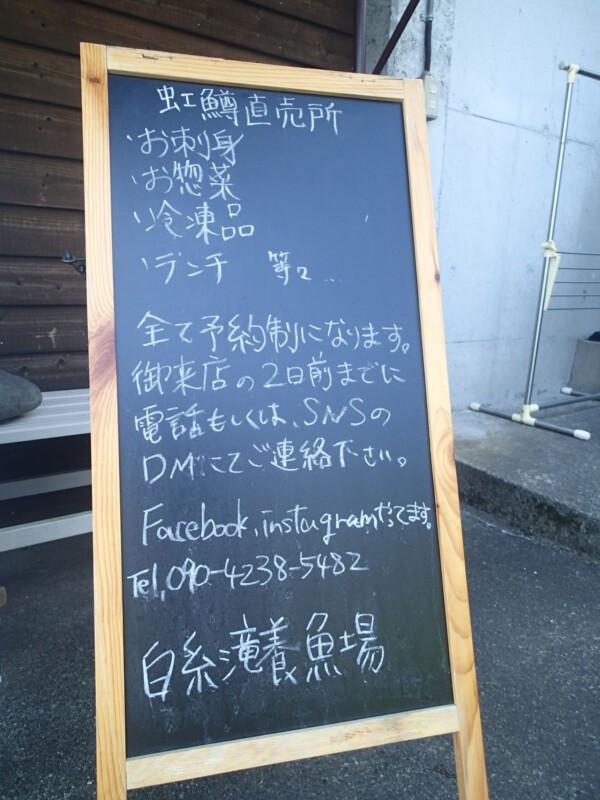 虹鱒直売所
・お刺身
・お惣菜
・冷凍品
・ランチ 等々...
全て予約制になります。
御来店の2日前までに
電話もしくは、SNSの
DMにてご連絡下さい。
Facebook, instagramやってます。
Tel, 090-4238-5482
白糸滝養魚場